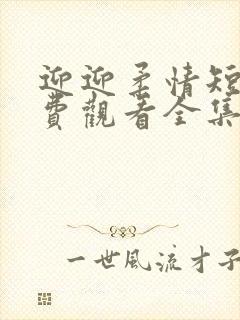 迎迎柔情短
费觀看全集
一世风流才子